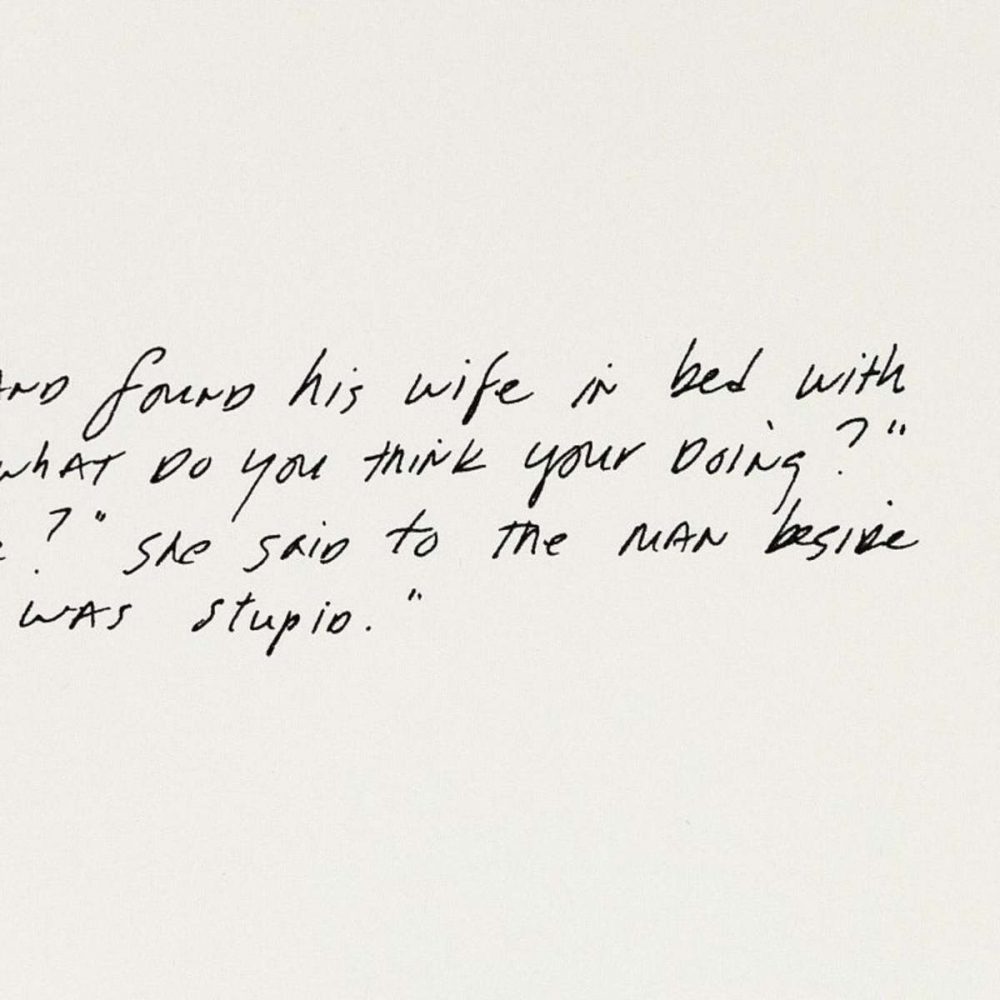 AND found his wife in bed with
what DO you think your Doing?"
?" She said to the MAN beside
was stupid."